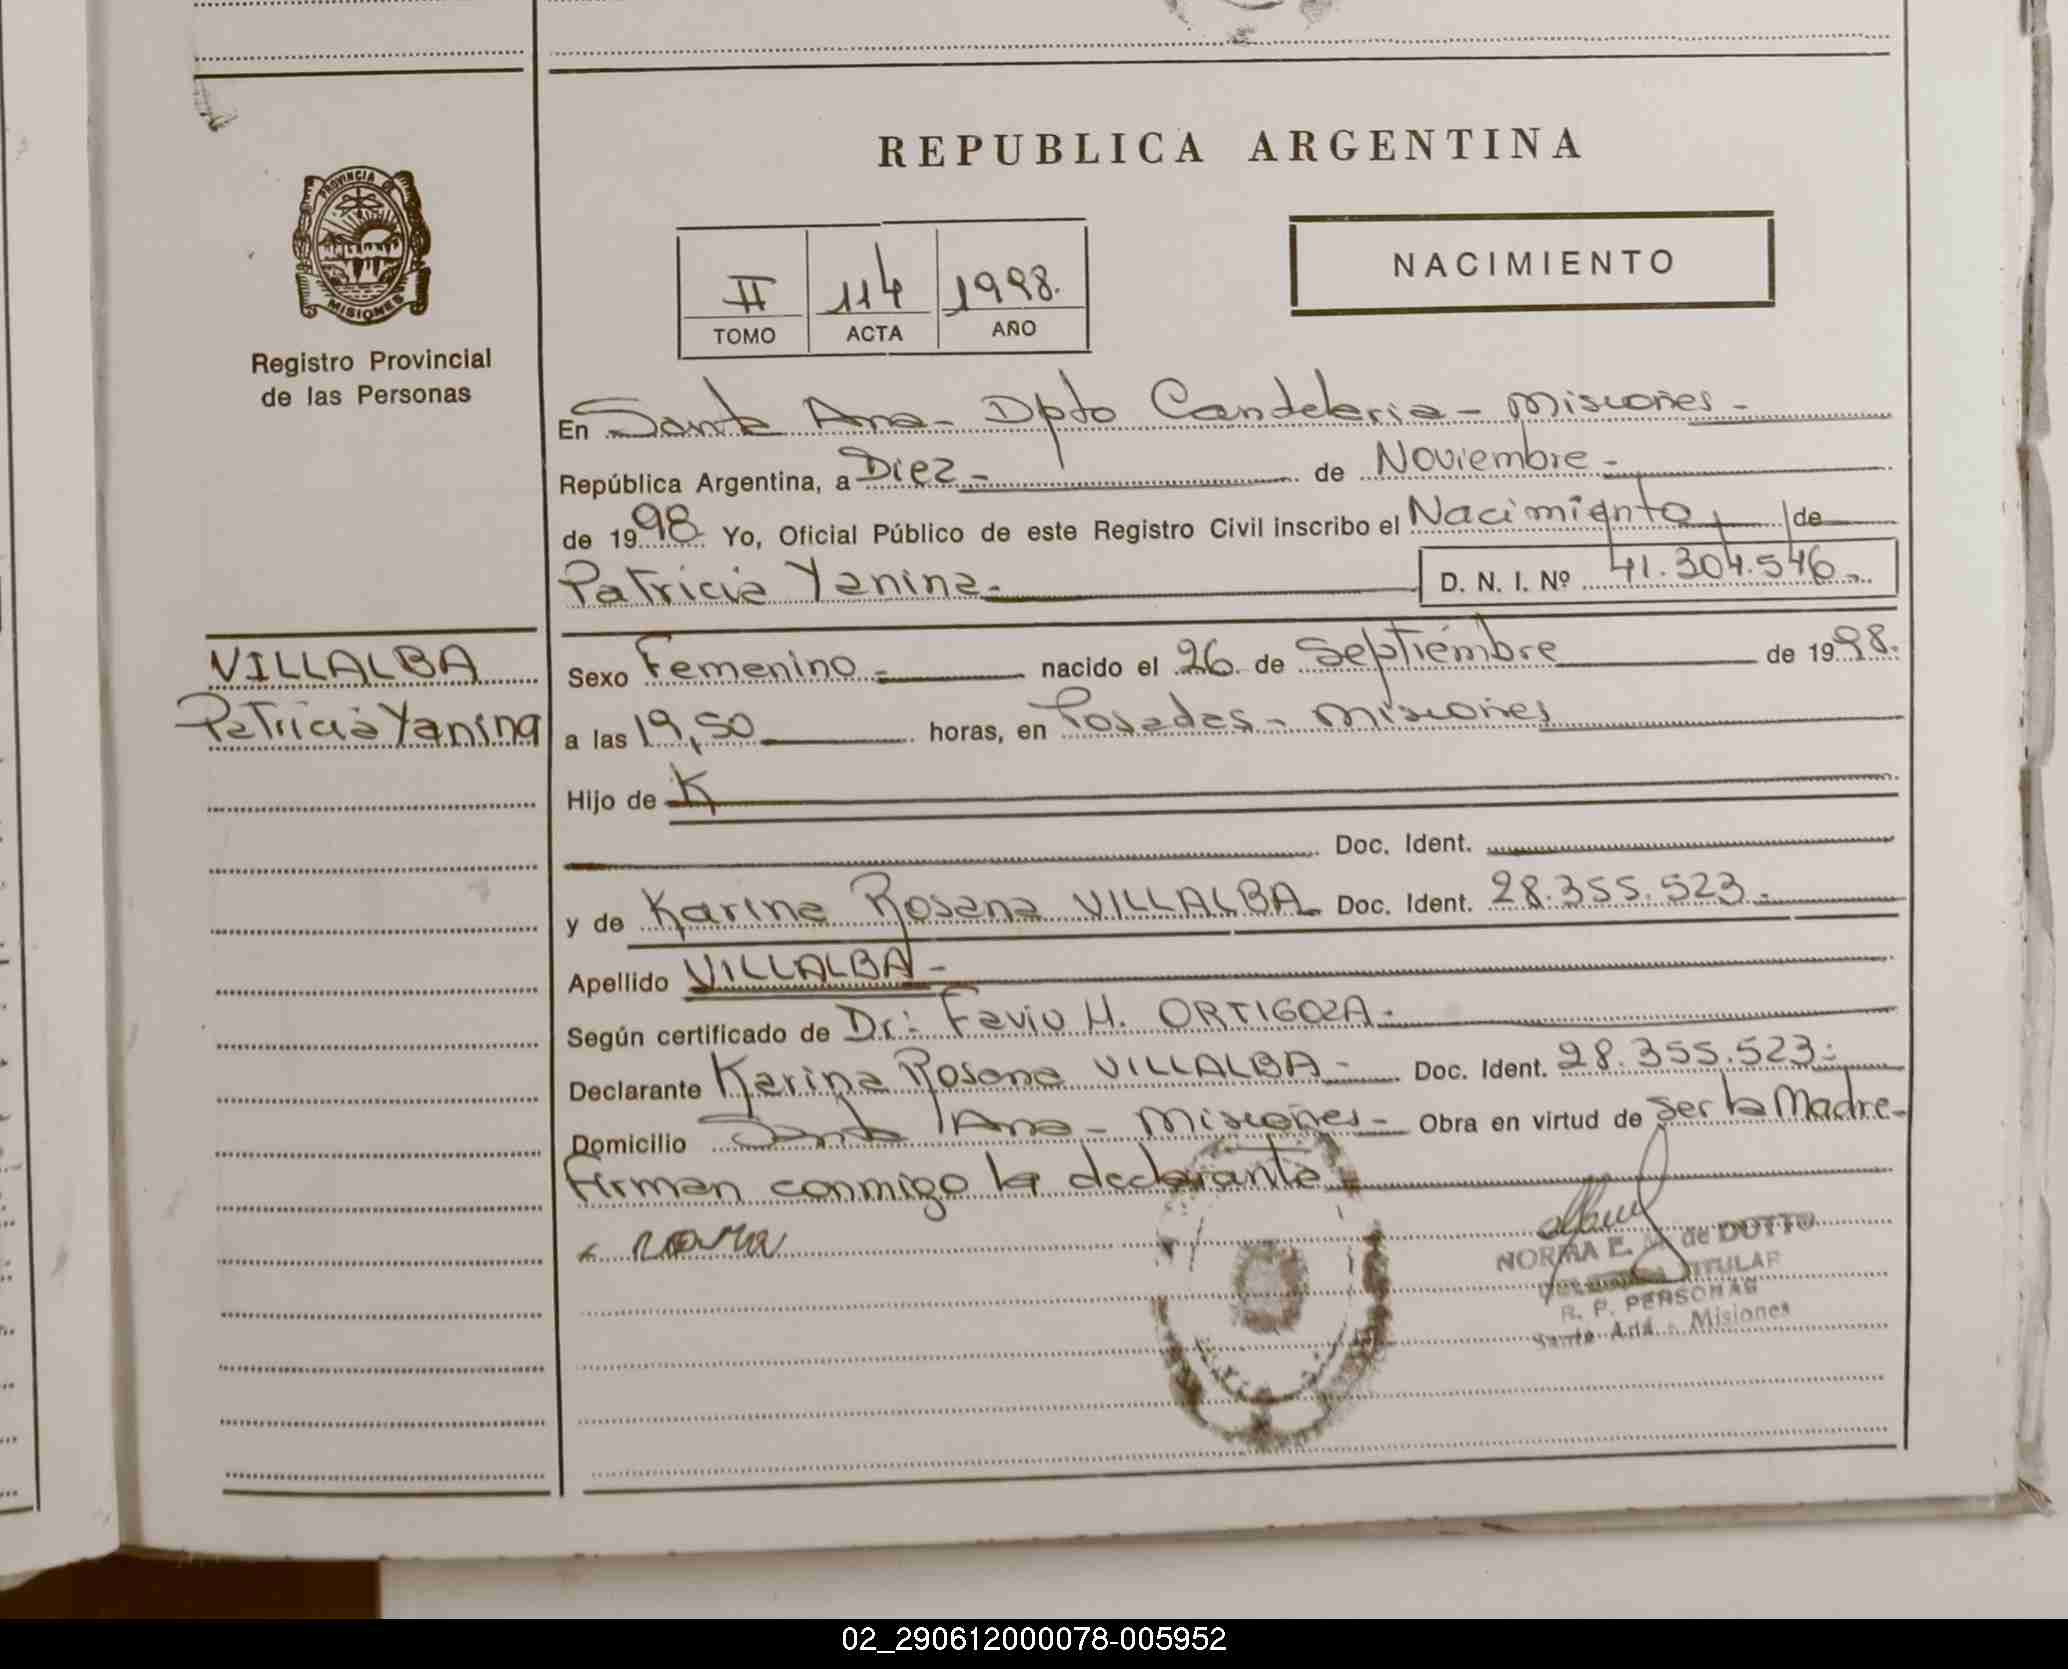 REPUBLICA ARGENTINA
PROVINCIA DE
MISIONES
Registro Provincial
de las Personas
II 114 1998.
TOMO ACTA AÑO
NACIMIENTO
En Santa Ana - Dpto Candelaria - Misiones -
República Argentina, a Diez - de Noviembre -
de 1998 Yo, Oficial Público de este Registro Civil inscribo el Nacimiento de
Patricia Yanina - D. N. I. Nº 41.304.546.-
VILLALBA
Patricia Yanina
Sexo Femenino - nacido el 26 de Septiembre de 1998.
a las 19,50 horas, en Posadas - Misiones
Hijo de K
Doc. Ident.
y de Karina Rosana VILLALBA Doc. Ident. 28.355.523 -
Apellido VILLALBA -
Según certificado de Dr: Favio H. ORTIGOZA -
Declarante Karina Rosana VILLALBA - Doc. Ident. 28.355.523 -
Domicilio Santa Ana - Misiones - Obra en virtud de ser la Madre -
Firman conmigo la declarante
NORMA E. de DOTTO
TITULAR
R. P. PERSONAS
Santa Ana - Misiones
02_290612000078-005952